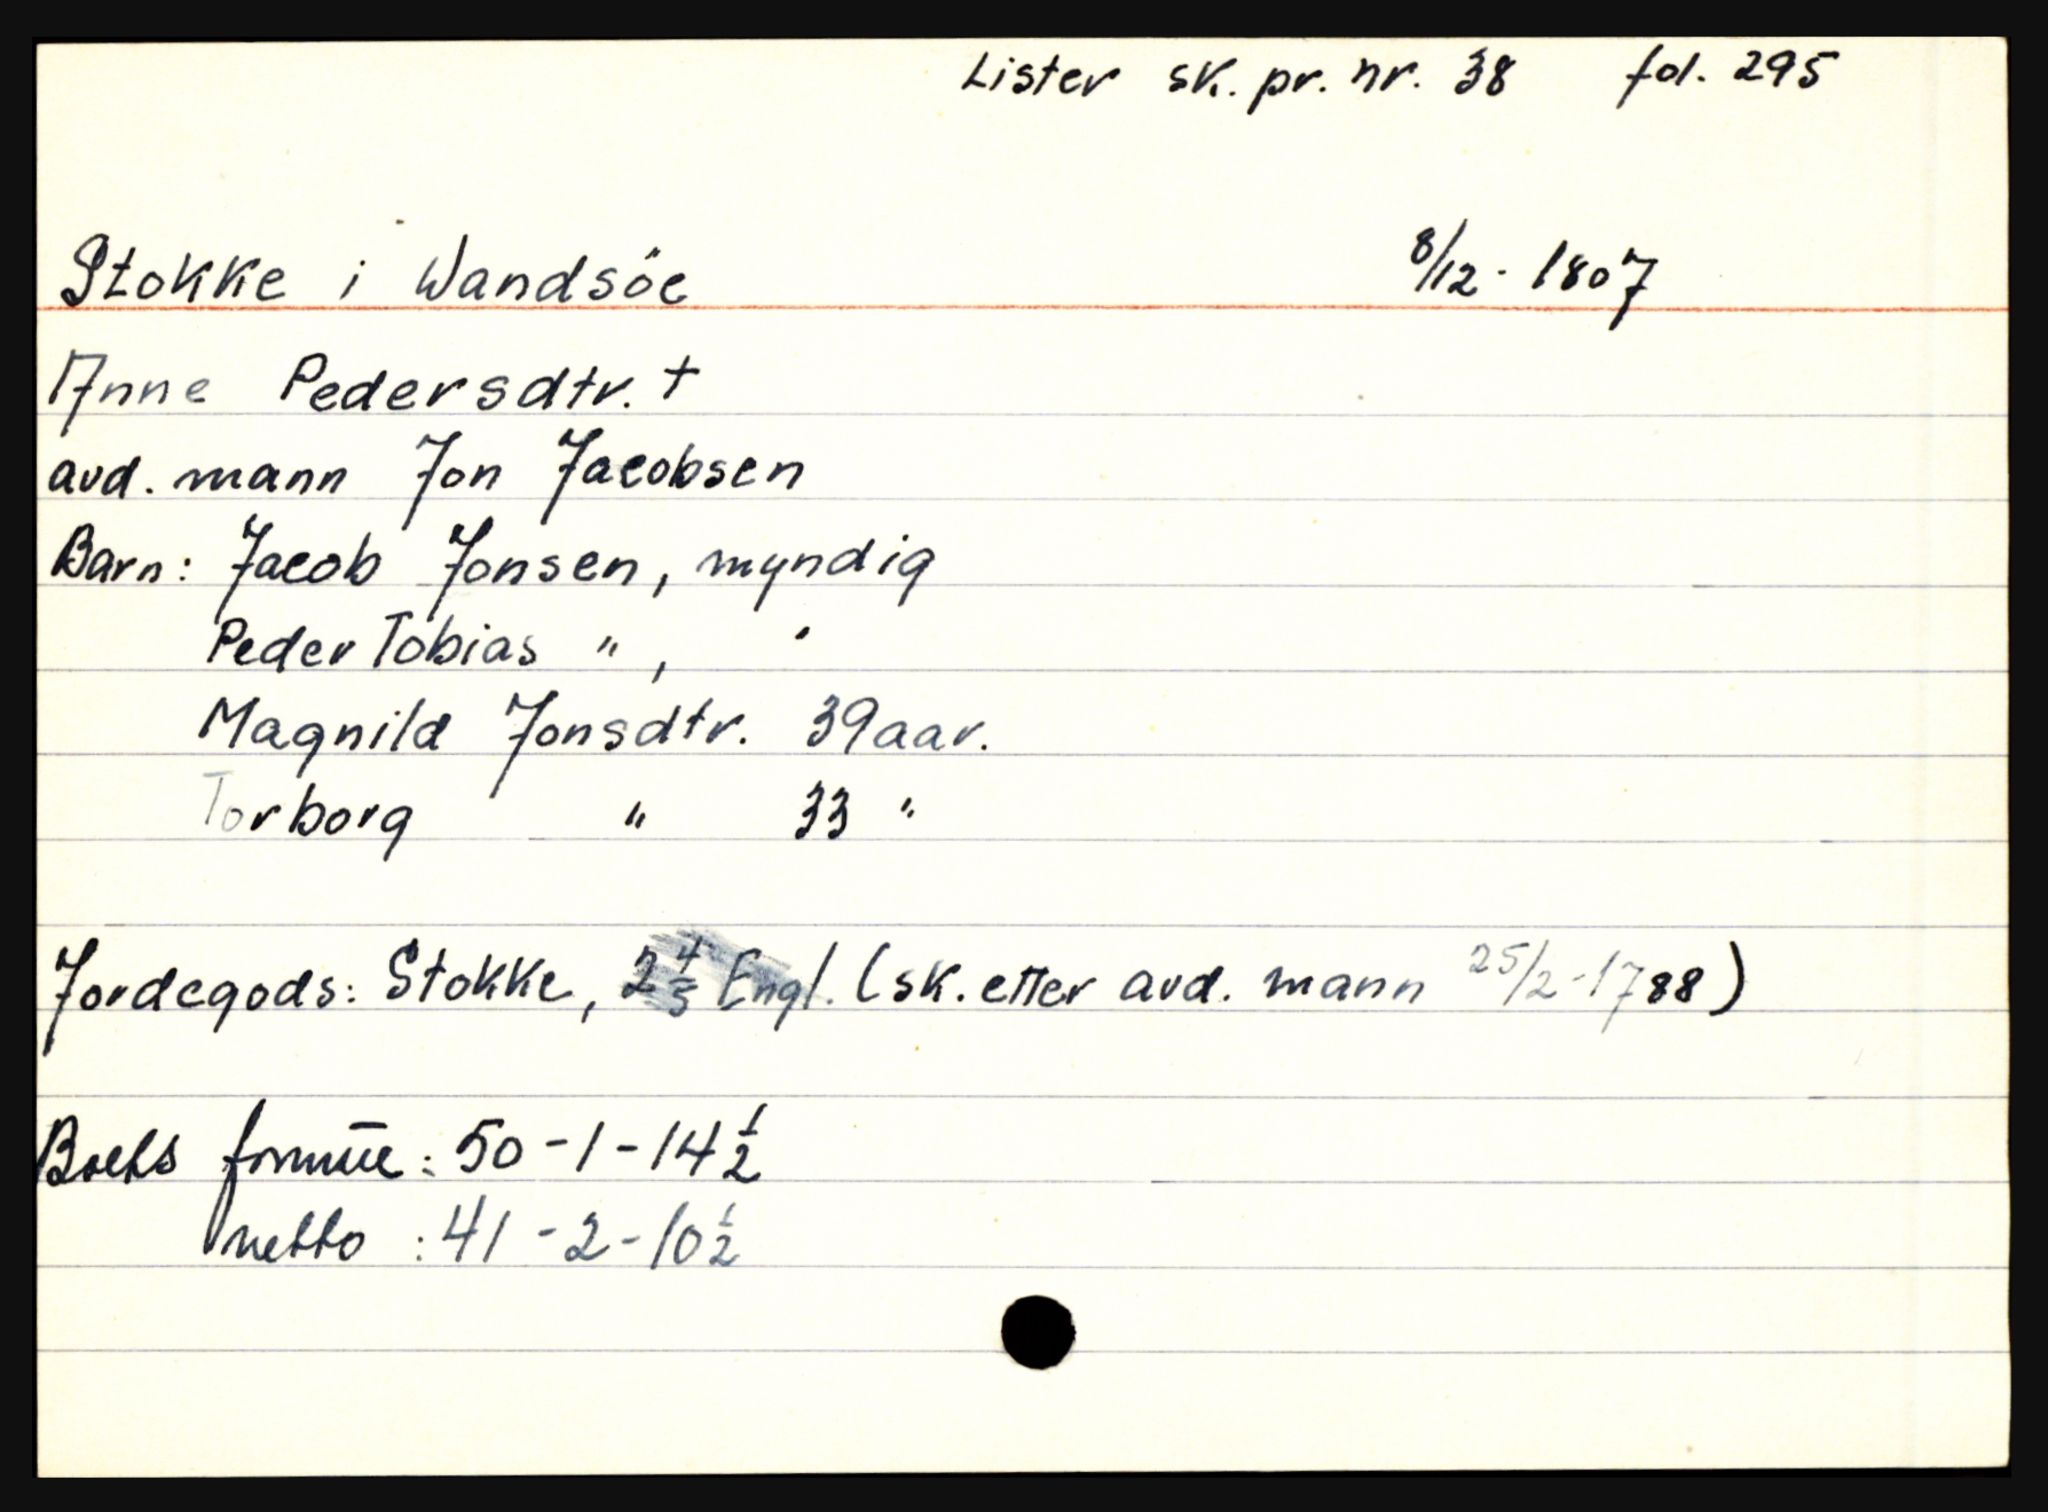 Lister sk. pr. nr. 38 fol. 295
Stokke i Wandsöe 8/12 - 1807
Anne Pedersdtr. +
avd. mann Jon Jacobsen
Barn: Jacob Jonsen, myndig
Peder Tobias " , "
Magnild Jonsdtr. 39 aar.
Torborg " 33 "
Jordegods: Stokke, 2 4/5 Engl. (sk. etter avd. mann 25/2 - 1788)
Boets formue: 50 - 1 - 14 1/2
netto : 41 - 2 - 10 1/2